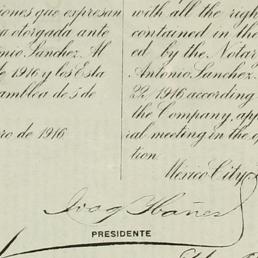 ciones que expresan
a otorgada ante
onio Sanchez. Al
e 1916 y los Esta
amblea de 5 de
ro de 1916
with all the righ
contained in the
ed by the Notar
Antonio Sanchez.
22, 1916 according
the Company, app
ral meeting in the
tion.
Mexico City,
PRESIDENTE